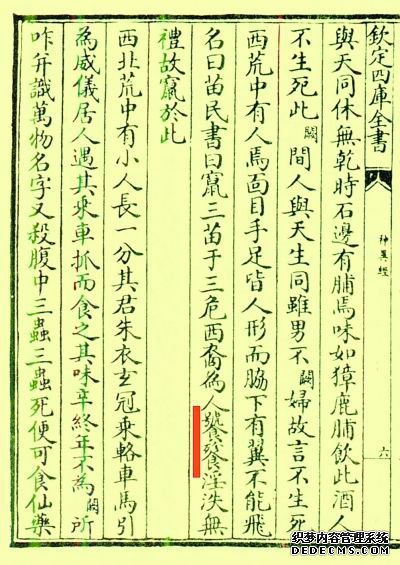 欽定四庫全書
神異經
六
與天同休無乾時石邊有脯焉味如獐鹿脯飲此酒人
不生死此闕間人與天生同雖男不闕婦故言不生死
西荒中有人焉面目手足皆人形而脇下有翼不能飛
名曰苗民書曰竄三苗于三危西裔為人饕餮淫泆無
禮故竄於此
西北荒中有小人長一分其君朱衣玄冠乘輅車馬引
為威儀居人遇其乗車抓而食之其味辛終年不為闕所
咋并識萬物名字又殺腹中三蟲三蟲死便可食仙藥
织梦内容管理系统
DEDECMS.COM